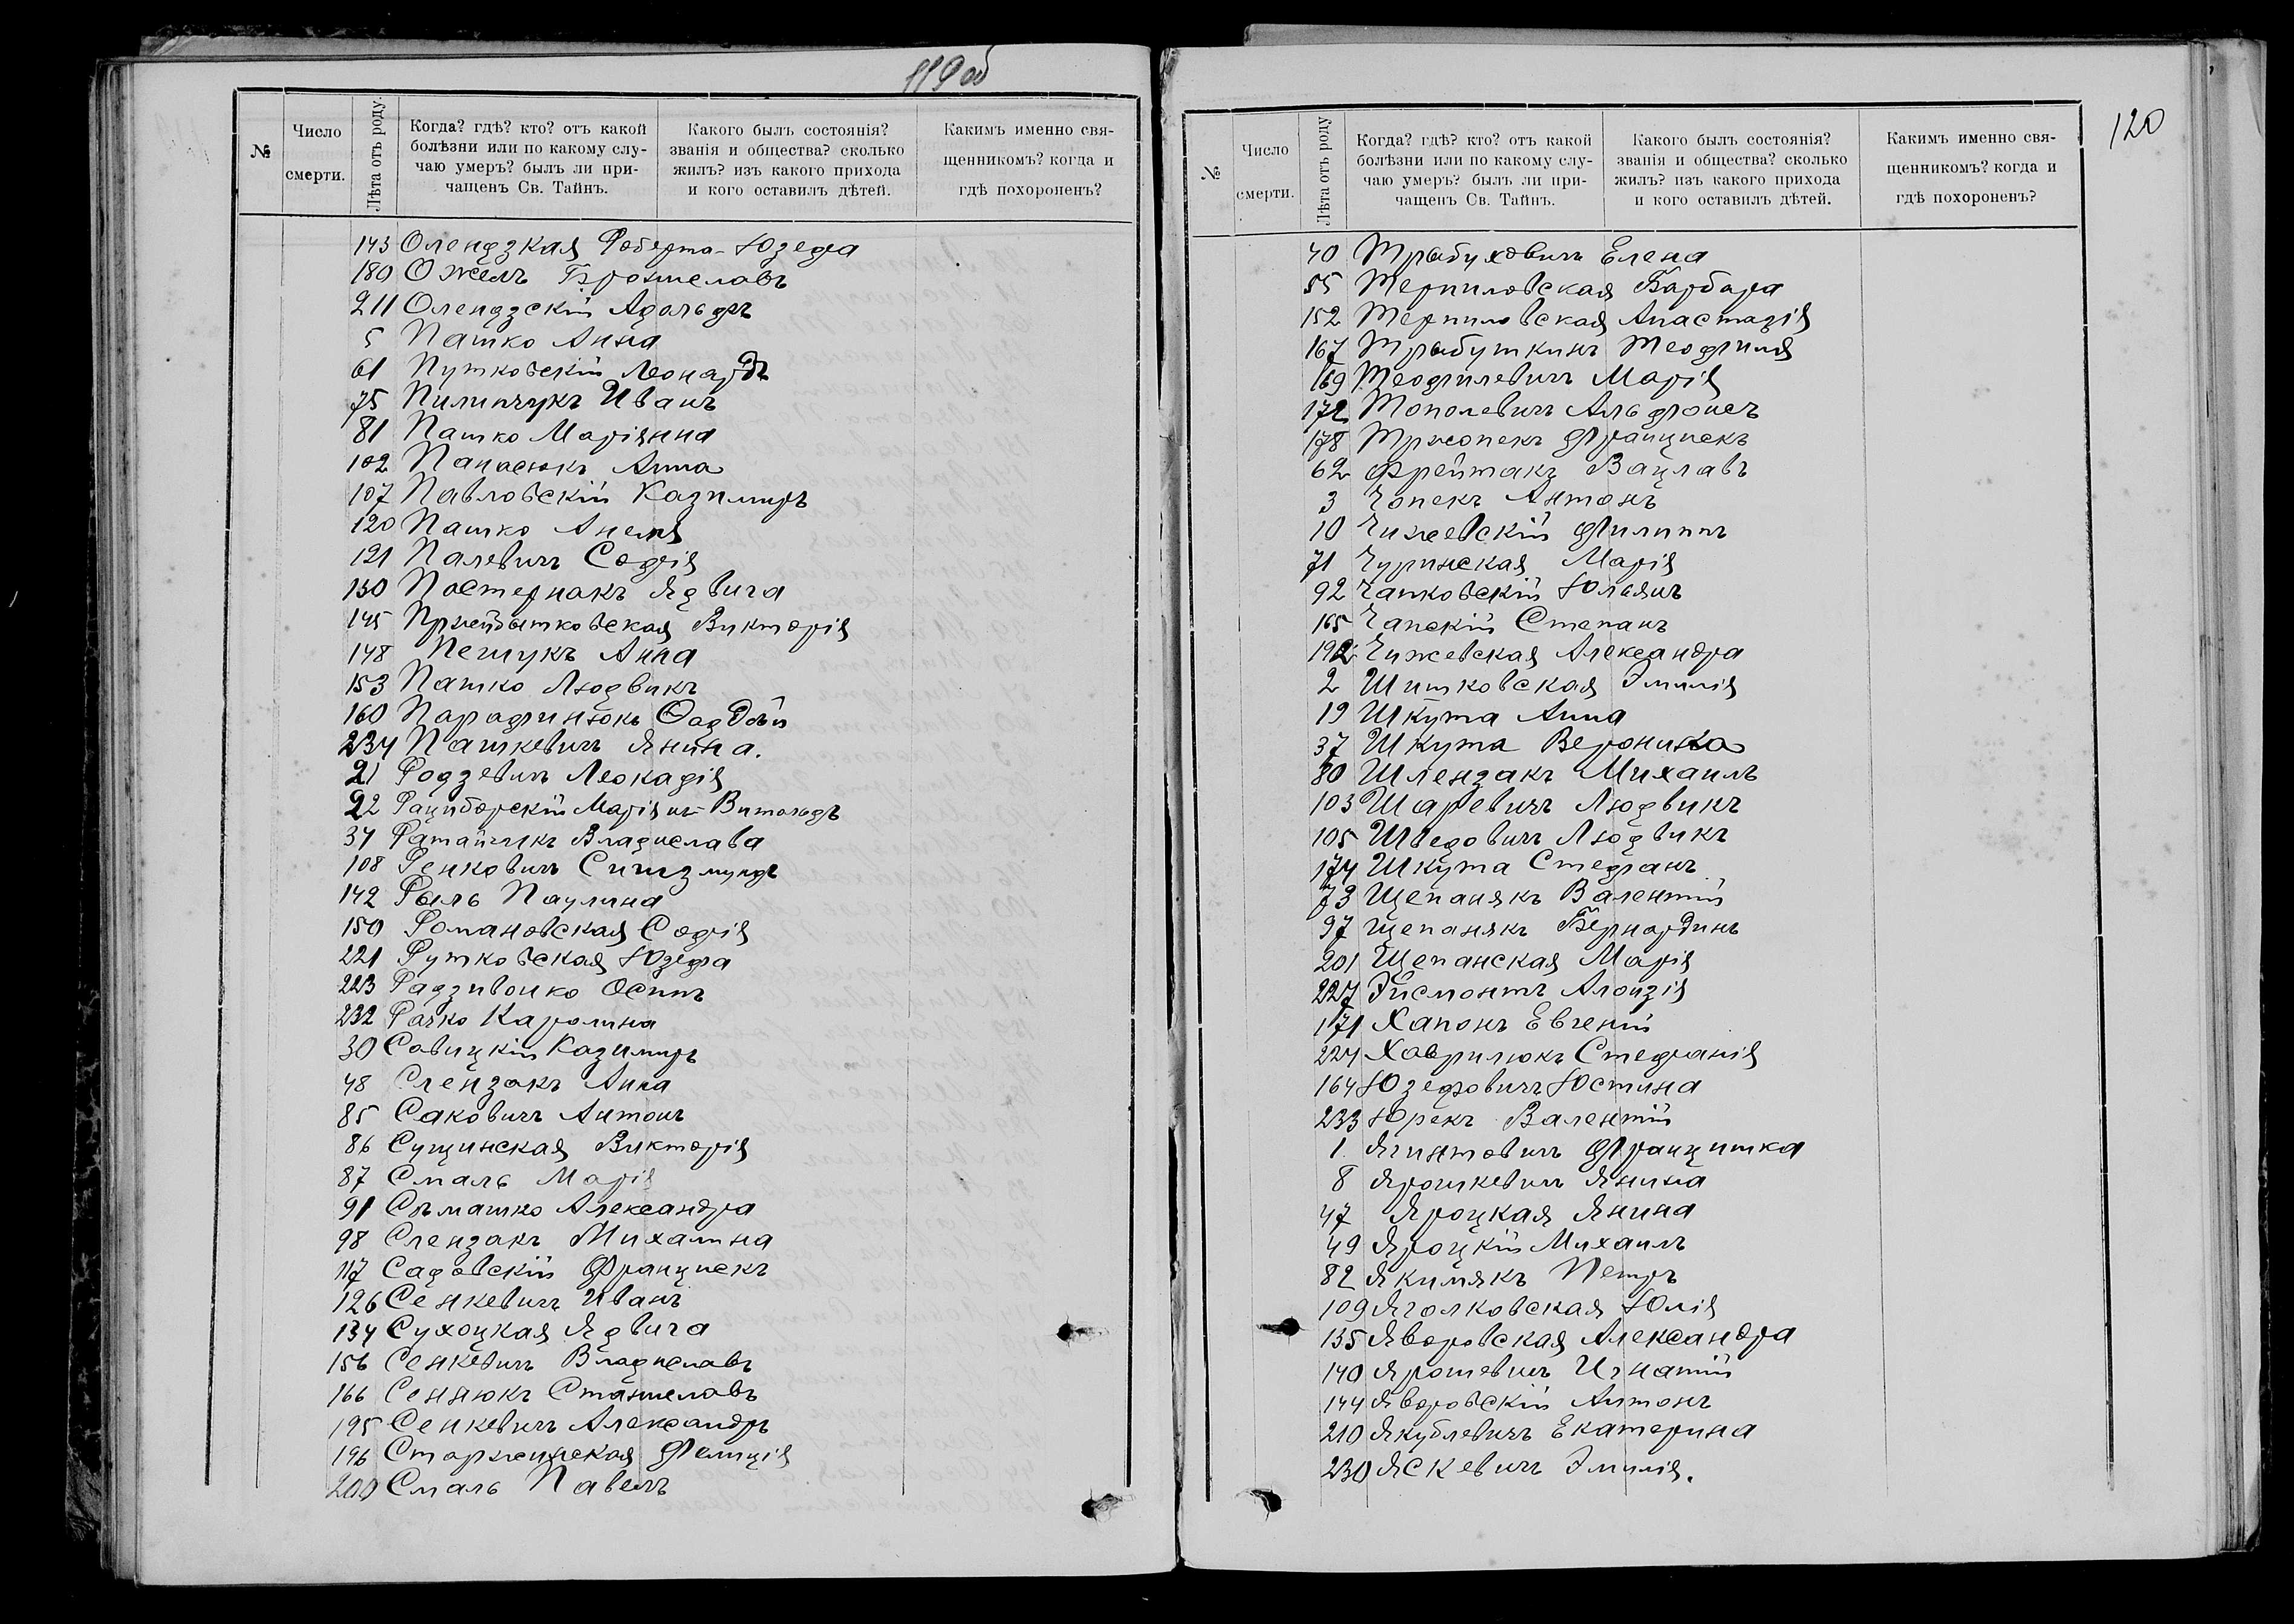 119 об
№
Число смерти.
Лѣта отъ роду.
Когда? гдѣ? кто? отъ какой
болѣзни или по какому слу-
чаю умеръ? былъ ли при-
чащенъ Св. Тайнъ.
Какого былъ состоянія?
званія и общества? сколько
жилъ? изъ какого прихода
и кого оставилъ дѣтей.
Какимъ именно свя-
щенникомъ? когда и
гдѣ похороненъ?
143 Олендзкая Роберта-Юзефа
180 Ожелъ Брониславъ
211 Олендзскій Адольфъ
5 Пашко Анна
61 Путковскій Леонардъ
75 Пилипчукъ Иванъ
81 Пашко Маріянна
102 Панасюкъ Анна
107 Павловскій Казимиръ
120 Пашко Анеля
121 Палевичъ Софія
130 Постернакъ Ядвига
145 Пржейбытковская Викторія
148 Пешукъ Анна
153 Пашко Людвикъ
160 Парафинюкъ Фаддѣй
234 Пашкевичъ Янина.
21 Родзевичъ Леокадія
22 Рациборскій Маріянъ-Витольдъ
34 Ратайчикъ Владислава
108 Ренковичъ Сигизмундъ
142 Рыль Паулина
150 Романовская Софія
221 Рутковская Юзефа
223 Радзивонко Осипъ
232 Рачко Каролина
30 Савицкій Казимиръ
48 Слендзакъ Анна
85 Саковичъ Антонъ
86 Сущинская Викторія
87 Смаль Марія
91 Сѣмашко Александра
98 Слендзакъ Михалина
117 Садовскій Францискъ
126 Сенкевичъ Иванъ
134 Сухоцкая Ядвига
156 Сенкевичъ Владиславъ
166 Сенюкъ Станиславъ
195 Сенкевичъ Александръ
196 Старжинская Фелиція
200 Смаль Павелъ
120
№
Число смерти.
Лѣта отъ роду
Когда? гдѣ? кто? отъ какой
болѣзни или по какому слу-
чаю умеръ? былъ ли при-
чащенъ Св. Тайнъ.
Какого былъ состоянія?
званія и общества? сколько
жилъ? изъ какого прихода
и кого оставилъ дѣтей.
Какимъ именно свя-
щенникомъ? когда и
гдѣ похороненъ?
40 Трыбуховичъ Елена
55 Терпиловская Барбара
152 Терпиловская Анастазія
167 Трыбушкинъ Теофиля
169 Теофилевичъ Марія
172 Тополевичъ Альфонсъ
178 Тржопекъ Францискъ
62 Фрейтакъ Вацлавъ
3 Чопекъ Антонъ
10 Чижевскій Филиппъ
71 Чуринская Марія
92 Чапковскій Юльянъ
165 Чапскій Степанъ
192 Чижевская Александра
2 Шишковская Эмилія
19 Шкута Анна
37 Шкута Вероника
80 Шлендзакъ Михаилъ
103 Шаревичъ Людвикъ
105 Шведовичъ Людвикъ
174 Шкута Стефанъ
73 Щепанякъ Валентій
97 Щепанякъ Бернардинъ
201 Щепанская Марія
227 Эйсмонтъ Алоизія
171 Хапонъ Евгеній
224 Хаврилюкъ Стефанія
164 Юзефовичъ Юстина
233 Юрекъ Валентій
1. Ягинтовичъ Францишка
8 Ярошкевичъ Янина
47 Яроцкая Янина
49 Яроцкій Михаилъ
82 Якимякъ Петръ
109 Яголковская Юлія
135 Яворовская Александра
140 Ярошевичъ Игнатій
144 Яворовскій Антонъ
210 Якублевичъ Екатерина
230 Яскевичъ Эмилія.